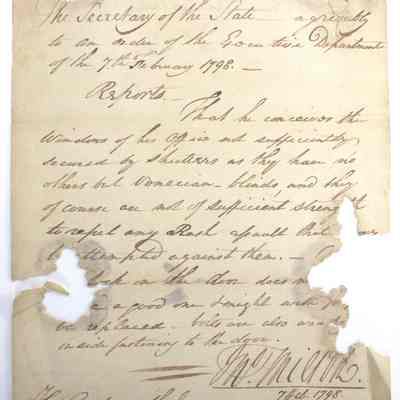 The Secretary of the State agreeably
to an order of the Executive Department
of the 7th February 1798.—
Reports—
That he conceives the
Windows of his Office not sufficiently
secured by Shutters as they have no
others but Venecian-blinds, and they
of course are not of sufficient strength
to repel any Rash assault that
be attempted against them.—
lock on the door does
a good one & might with
be replaced. bolts are also
inside fastening to the door.
Jno. Milton.
7 Feb. 1798